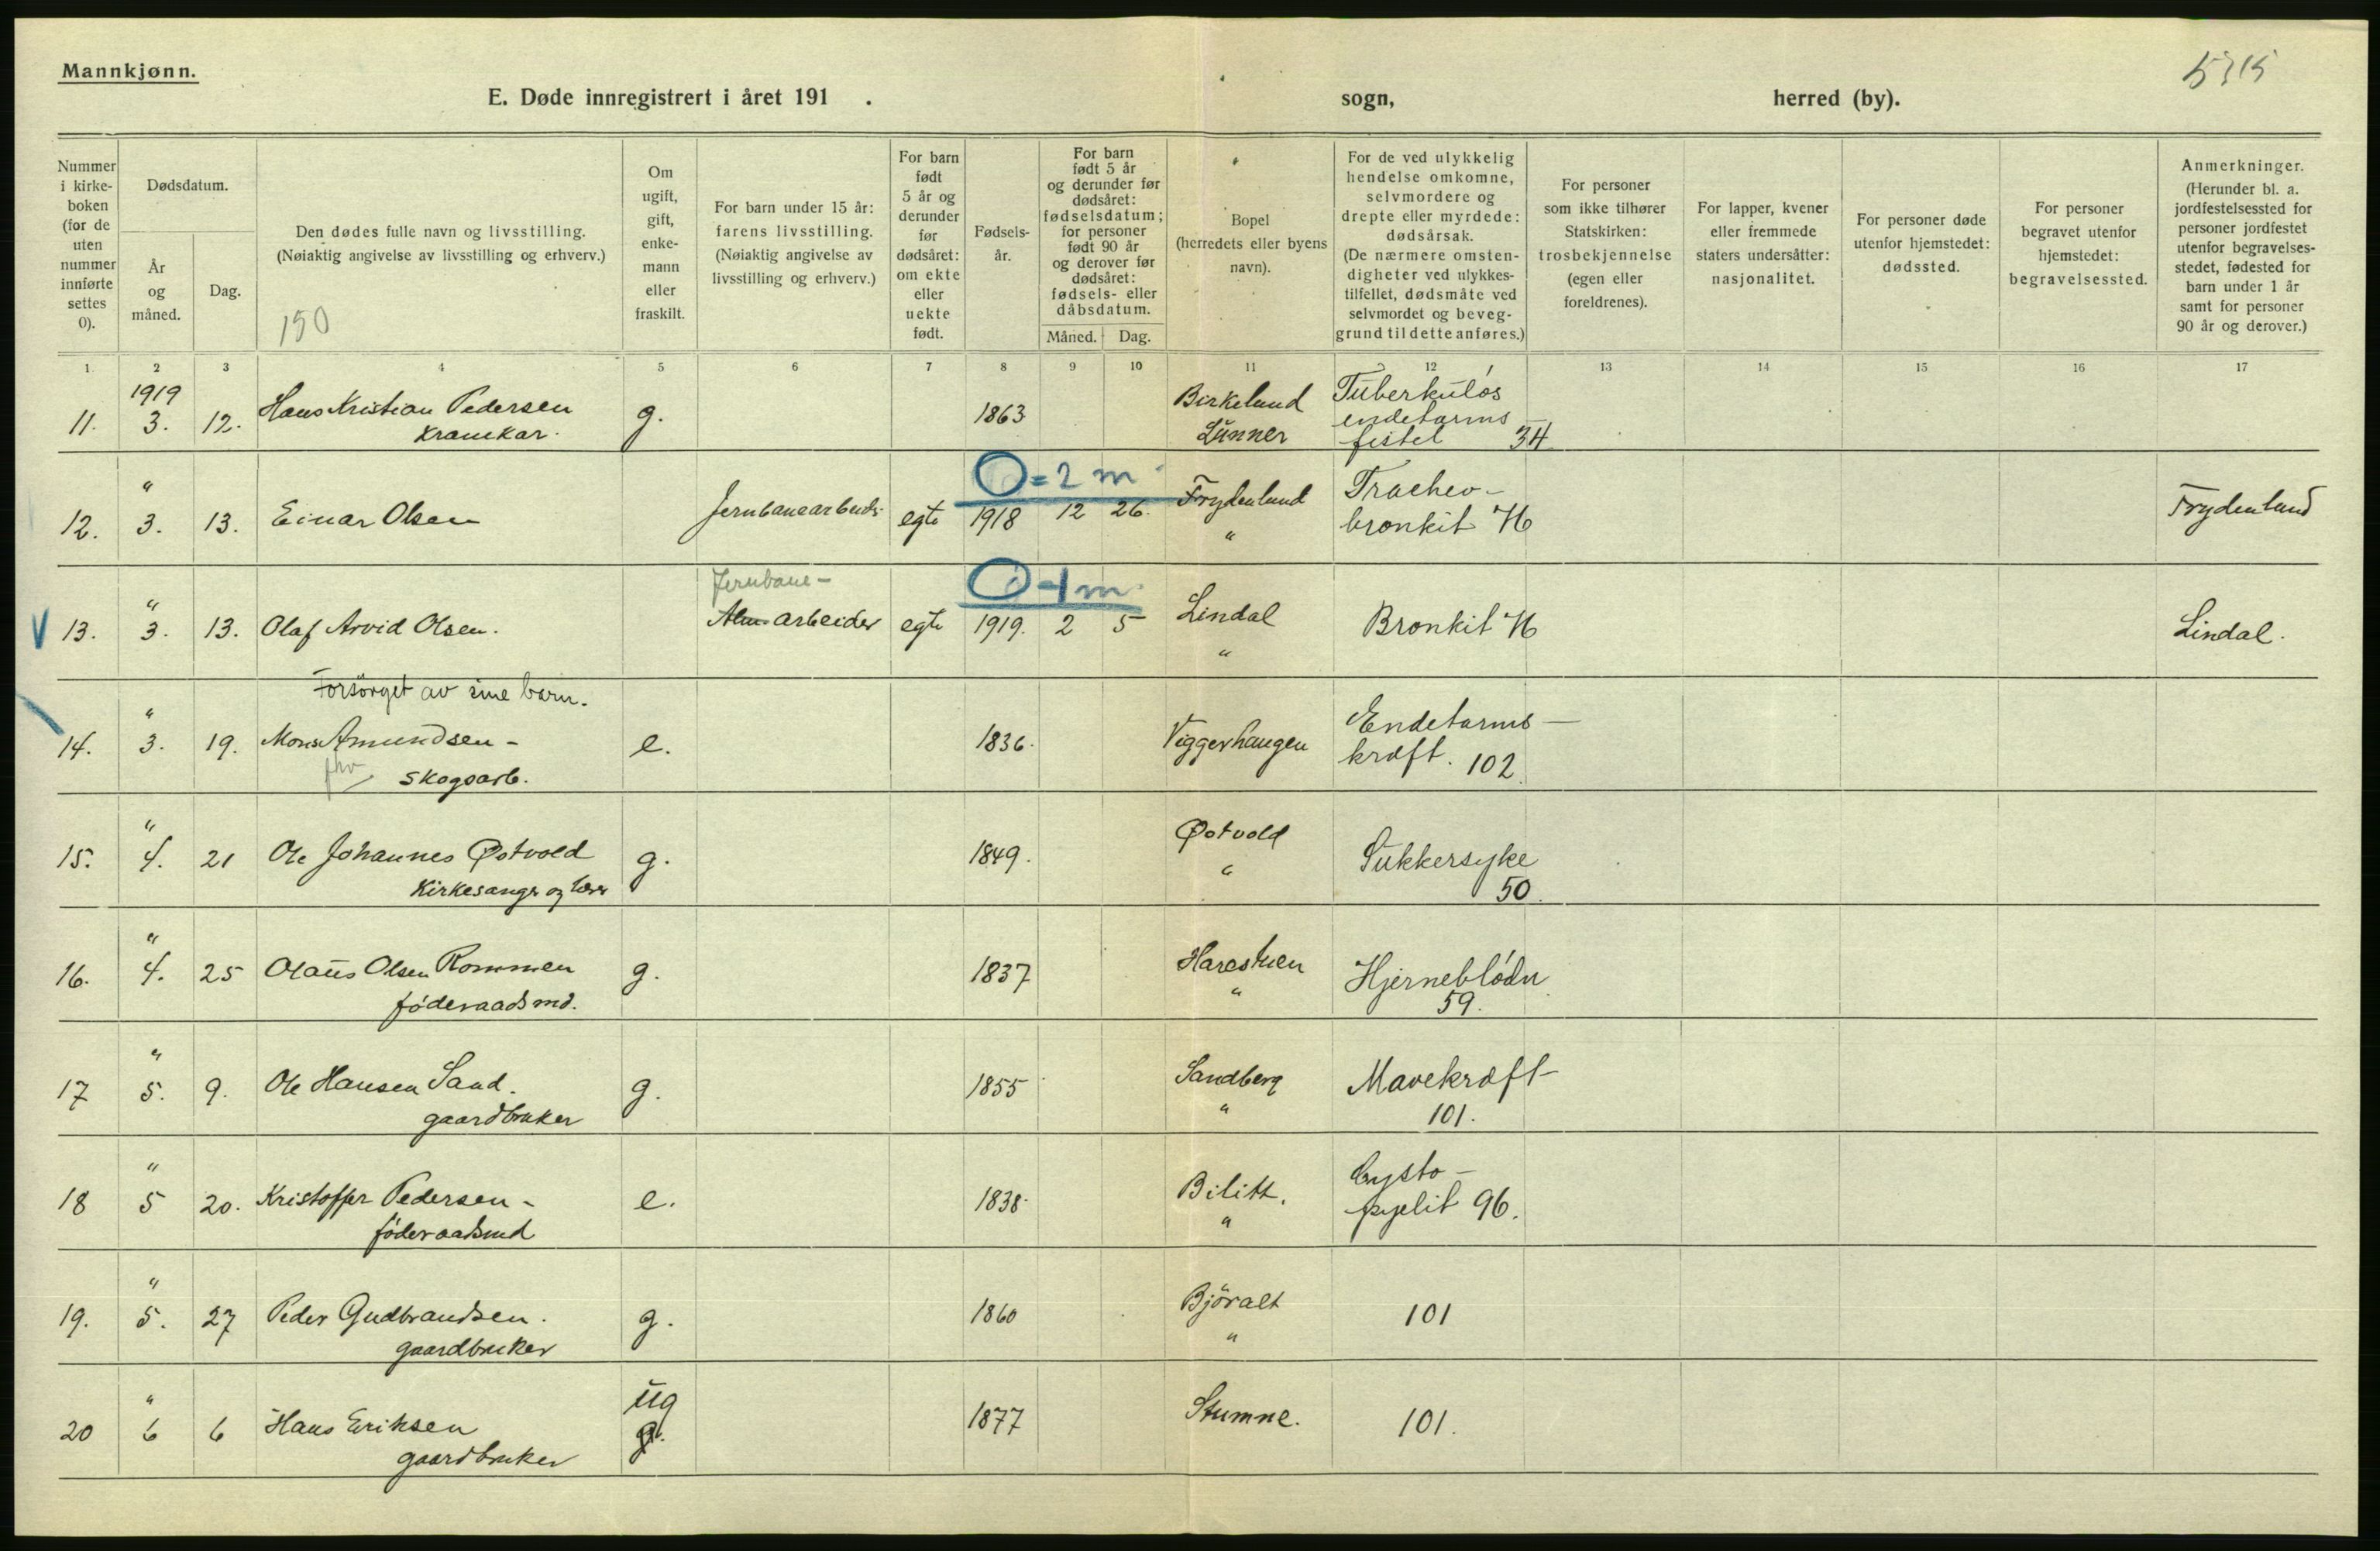 Mannkjønn.
5315
E. Døde innregistrert i året 191 . sogn, herred (by).
Nummer i kirke-boken (for de uten nummer innførte settes 0).
Dødsdatum.
År og måned.
Dag.
Den dødes fulle navn og livsstilling.
(Nøiaktig angivelse av livsstilling og erhverv.)
150
Om ugift, gift, enke-mann eller fraskilt.
For barn under 15 år: farens livsstilling.
(Nøiaktig angivelse av livsstilling og erhverv.)
For barn født 5 år og derunder før dødsåret: om ekte eller uekte født.
Fødsels-år.
For barn født 5 år og derunder før dødsåret: fødselsdatum; for personer født 90 år og derover før dødsåret: fødsels- eller dåbsdatum.
Måned. Dag.
Bopel (herredets eller byens navn).
For de ved ulykkelig hendelse omkomne, selvmordere og drepte eller myrdede: dødsårsak.
(De nærmere omsten-digheter ved ulykkes-tilfellet, dødsmåte ved selvmordet og beveg-grund til dette anføres.)
For personer som ikke tilhører Statskirken: trosbekjennelse (egen eller foreldrenes).
For lapper, kvener eller fremmede staters undersåtter: nasjonalitet.
For personer døde utenfor hjemstedet: dødssted.
For personer begravet utenfor hjemstedet: begravelsessted.
Anmerkninger.
(Herunder bl. a. jordfestelsessted for personer jordfestet utenfor begravelses-stedet, fødested for barn under 1 år samt for personer 90 år og derover.)
1 2 3 4 5 6 7 8 9 10 11 12 13 14 15 16 17
1919
11. 3. 12. Hans Kristian Pedersen g. 1863 Birkelund Tuberkuløs
Kranekar. Lunner endetarms
fistel 34
O = 2 m
12. " 3. 13. Einar Olsen Jernbanearbeids egte 1918 12 26. Frydenlund Tracheo- Frydenlund
" bronkit 76
Jernbane- O 1 m.
V 13. " 3. 13. Olaf Arvid Olsen. Alm arbeider egte 1919. 2 5 Lindal Bronkit 76 Lindal.
"
Forsörget av sine barn.
14. " 3. 19. Mons Amundsen - e. 1836. Viggerhaugen Endetarms-
fhv skogsarb. kræft. 102
15. " 4. 21 Ole Johannes Østvold g. 1849. Østvold Sukkersyke
Kirkesanger og lærer " 50
16. " 4. 25 Olaus Olsen Rommen g. 1837 Harestuen Hjerneblødn
föderaadsmd. " 59.
17 " 5. 9. Ole Hansen Sand. g. 1855 Sandberg Mavekræft
gaardbruker " 101.
18 " 5 20. Kristoffer Pedersen - e. 1838. Bilitt. Cysto-
föderaadsmd " pyelit 96.
19. " 5. 27 Peder Gudbrandsen. g. 1860 Björalt 101
gaardbruker "
20 " 6 6 Hans Eriksen ug 1877 Stumne. 101.
gaardbruker g.